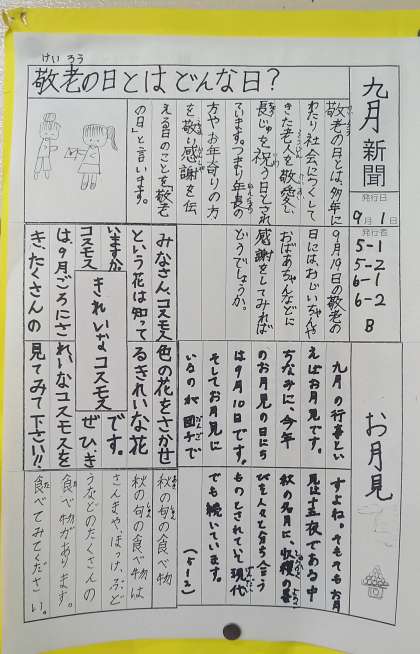 九月新聞
発行日
9月1日
発行者
5-1
5-2
6-1
6-2
B
けいろう
敬老の日とはどんな日？
敬老の日とは、多年に
わたり社会につくして
きた老人を敬愛し、
長じゅを祝う日とされ
ています。つまり年長の
方やお年寄りの方
を敬い感謝を伝
える日のことを「敬老
の日」と言います。
9月19日の敬老の
日には、おじいちゃん、
おばあちゃんなどに
感謝をしてみれば
どうでしょうか。
きれいなコスモス
みなさん、コスモス
という花は知って
いますか
コスモス
は、9月ごろにさ
き、たくさんの
色の花をさかせ
るきれいな花
です。
ぜひき
れいなコスモスを
見てみて下さい!!
お月見
九月の行事とい
えばお月見です。
ちなみに、今年
のお月見の日にち
は9月10日です。
そしてお月見に
いるのが団子で
すよね。そもそもお月
見は十五夜である中
秋の名月に、収穫の喜
びを人々と分ち合う
ものとされていて現代
でも続いています。
(5-2)
秋の旬の食べ物
秋の旬の食べ物は
さんまや、ほっけ、ぶど
うなどのたくさんの
食べ物があります。
食べてみてください。